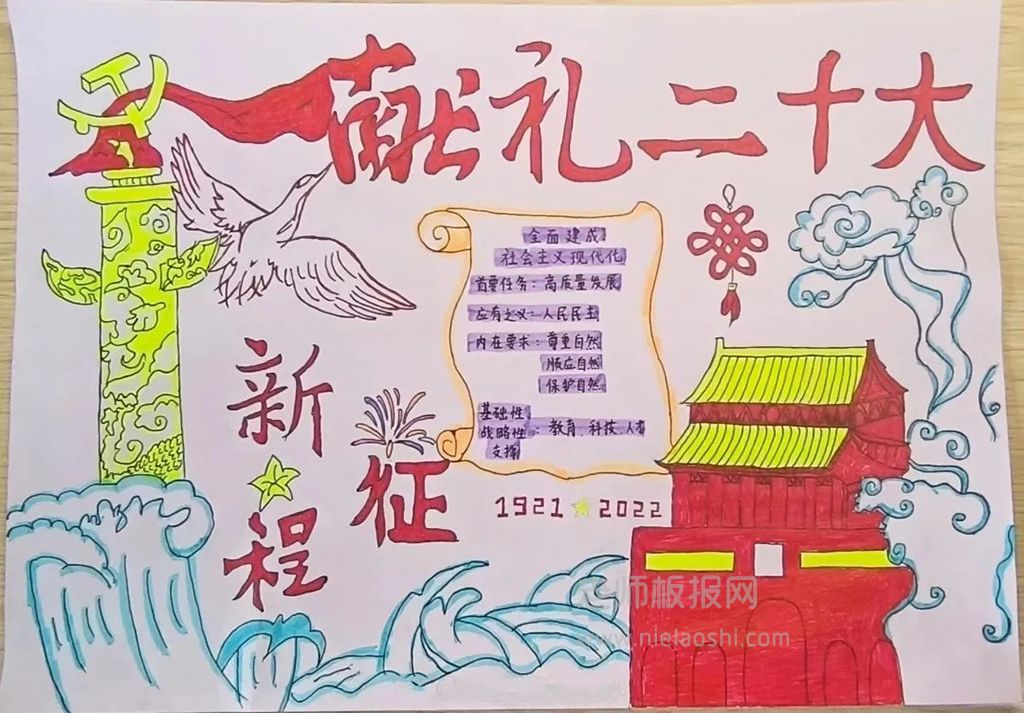 献礼二十大
全面建成
社会主义现代化
首要任务：高质量发展
应有之义：人民民主
内在要求：尊重自然
顺应自然
保护自然
基础性
战略性：教育、科技、人才
支撑
新
征
程
1921 2022
老师板报网
www.nielaoshi.com